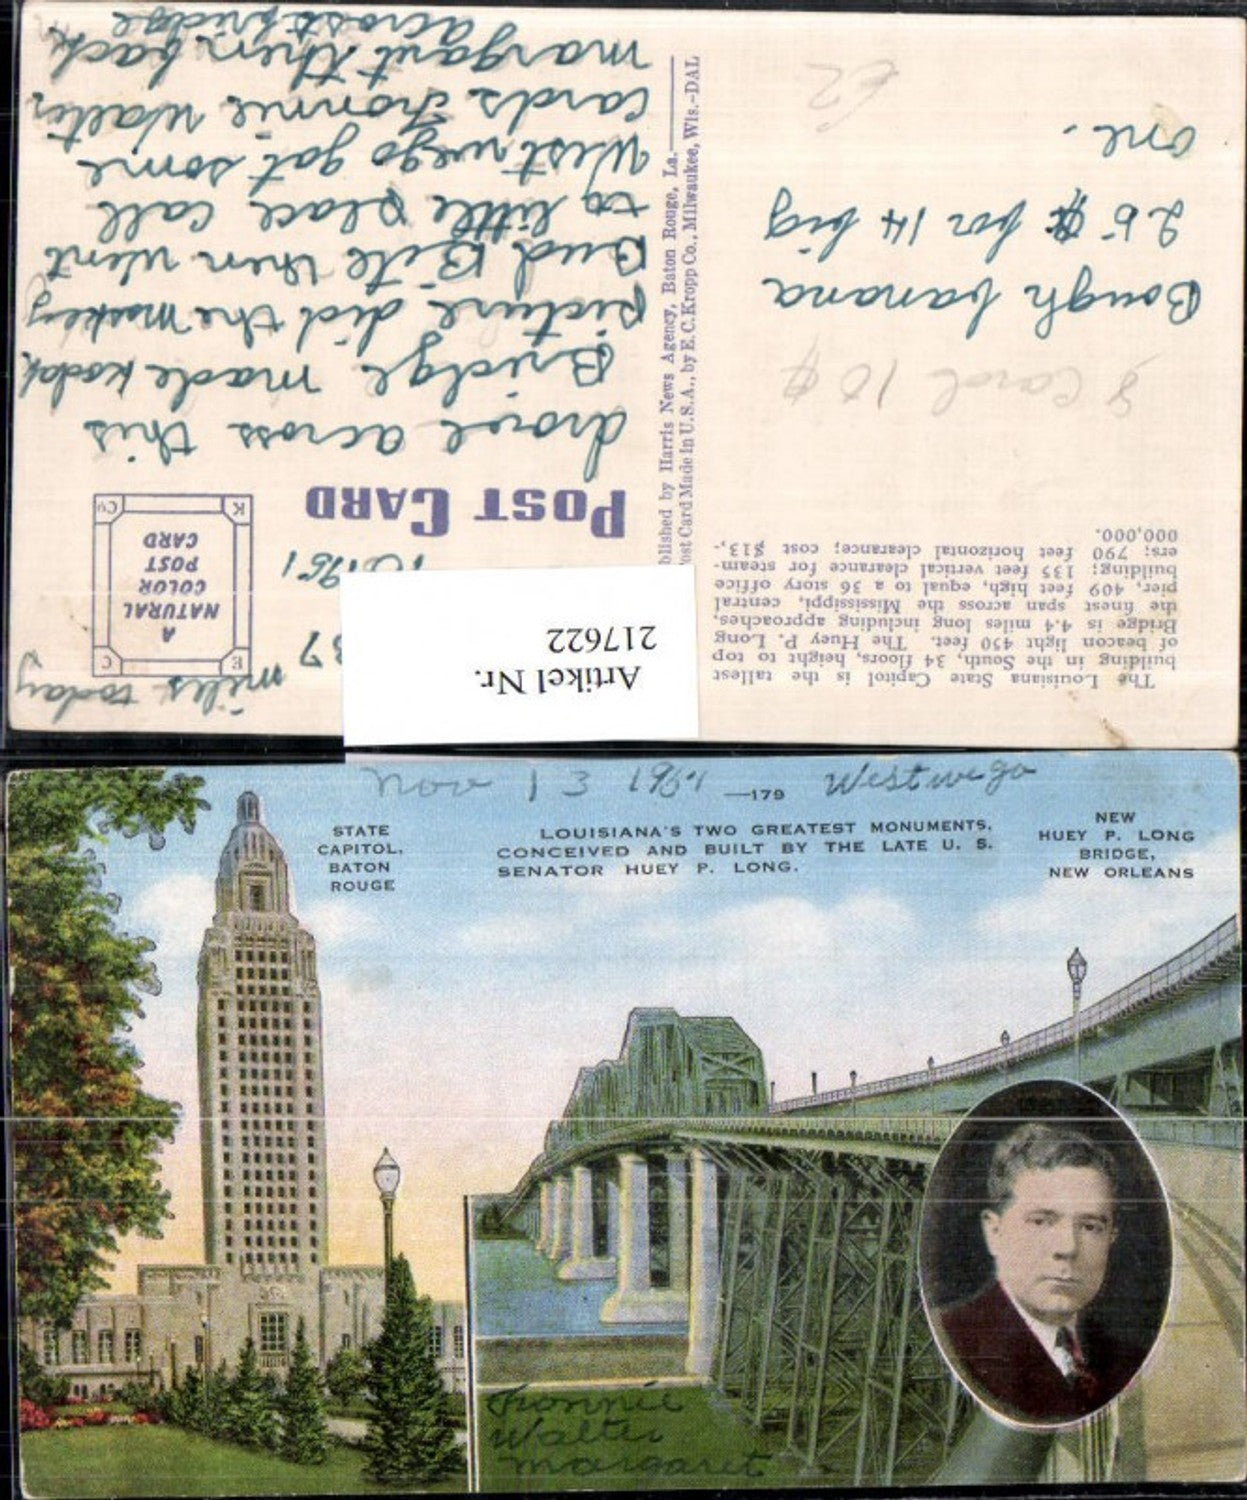 The Louisiana State Capitol is the tallest
building in the South, 34 floors, height to top
of beacon light 450 feet. The Huey P. Long
Bridge is 4.4 miles long including approaches,
the finest span across the Mississippi, central
pier, 409 feet high, equal to a 36 story office
building; 135 feet vertical clearance for steam-
ers; 790 feet horizontal clearance; cost $13,-
000,000.
8 Card 10¢
Bough banana
25¢ for 14 big
one.
blished by Harris News Agency, Baton Rouge, La.
ost Card Made in U.S.A., by E. C. Kropp Co., Milwaukee, Wis.-DAL
Artikel Nr.
217622
37
miles today
1951
E C
A
NATURAL
COLOR
POST
CARD
K Co
POST CARD
drove across this
Bridge made kodak
picture did the
Bud Bite then went
to little place call
Westwego got some
cards Fronnie Walter
margart then back
across bridge
Nov 13 1951 Westwego
—179
STATE
CAPITOL,
BATON
ROUGE
LOUISIANA'S TWO GREATEST MONUMENTS,
CONCEIVED AND BUILT BY THE LATE U. S.
SENATOR HUEY P. LONG.
NEW
HUEY P. LONG
BRIDGE,
NEW ORLEANS
Fronnie
Walter
Margaret